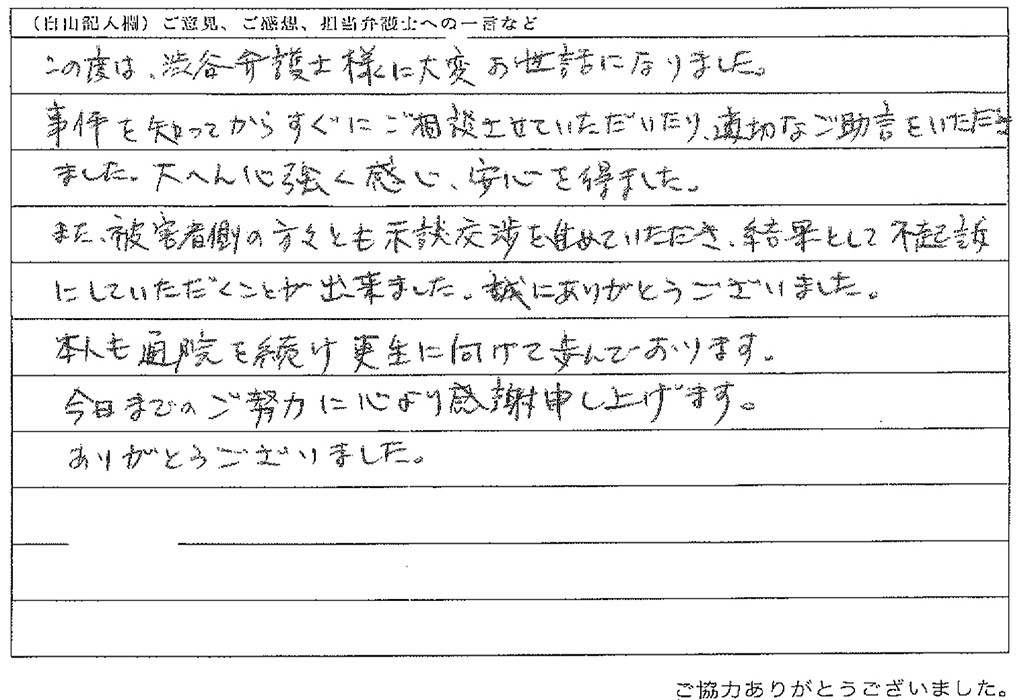 （自由記入欄）ご意見、ご感想、担当弁護士への一言など
この度は、渋谷弁護士様に大変お世話になりました。
事件を知ってからすぐにご相談させていただいたり、適切なご助言をいただき
ました。大へん心強く感じ、安心を得ました。
また、被害者側の方々とも示談交渉を進めていただき、結果として不起訴
にしていただくことが出来ました。誠にありがとうございました。
本人も通院を続け更生に向けて歩んでおります。
今日までのご努力に心より感謝申し上げます。
ありがとうございました。
ご協力ありがとうございました。